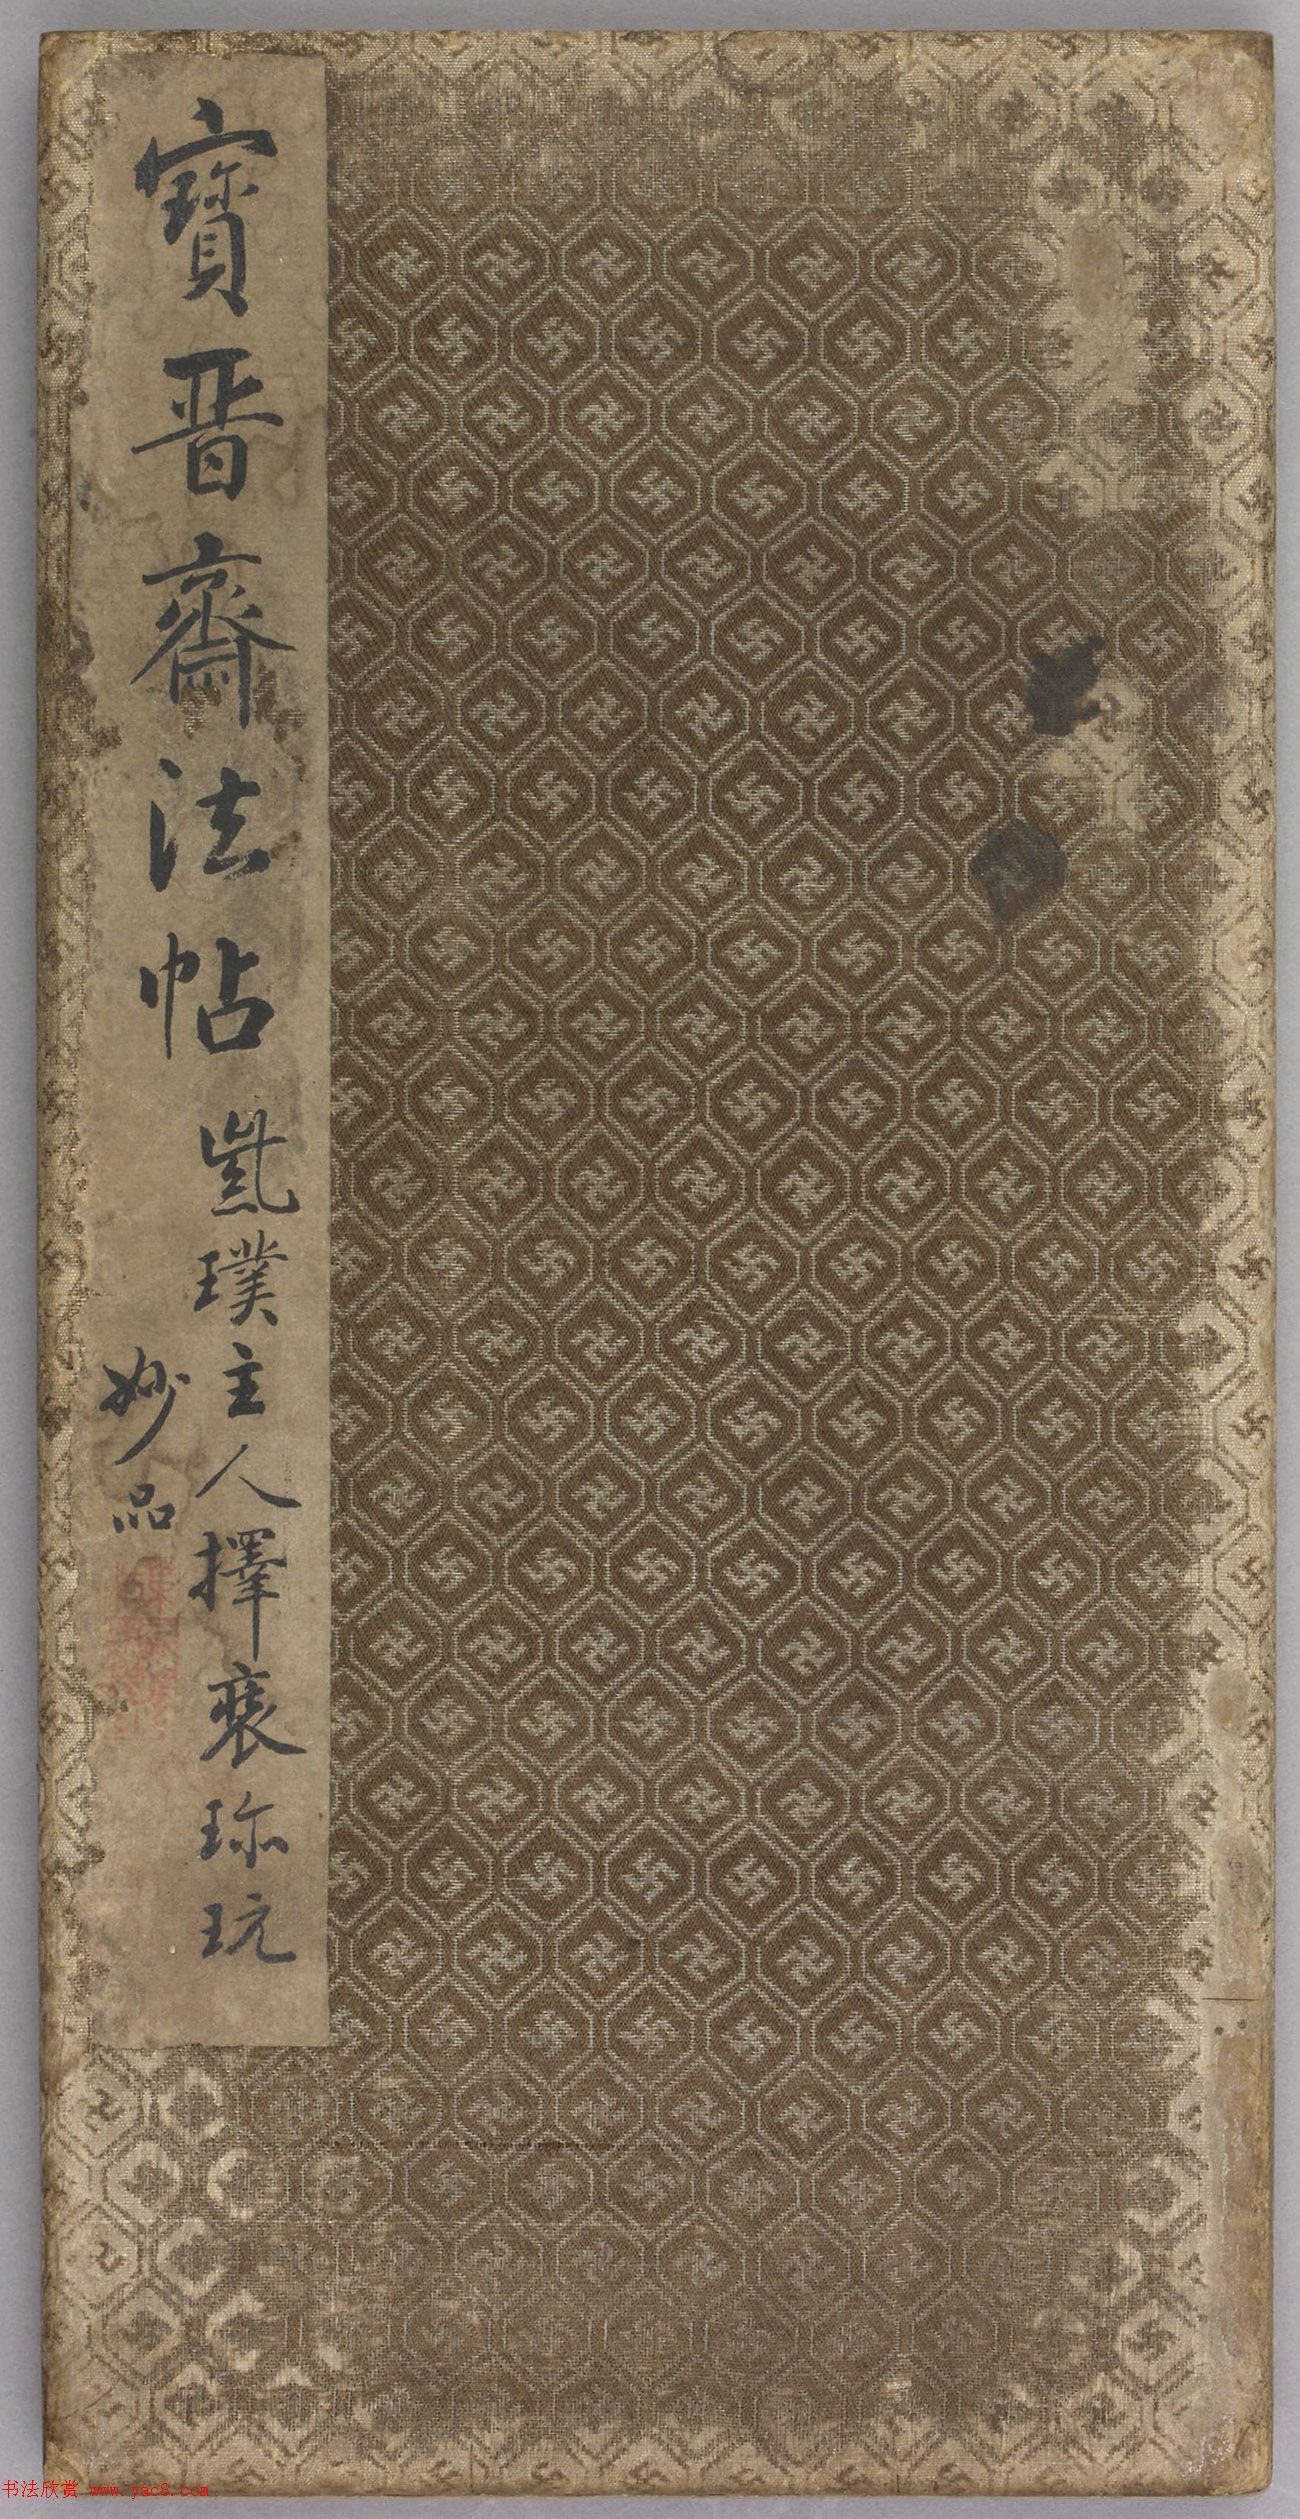 寳晋齋法帖
璞主人擇裘珎玩
妙品
书法欣赏 www.yac8.com